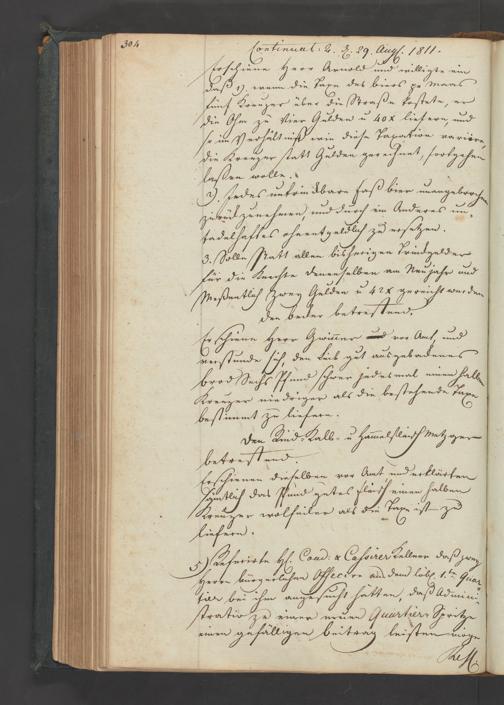 304
Continuat: 2. d. 29. Augst. 1811.
erschiene Herr Arnold und willigte ein
daß 1). wenn die Taxe des biers pr Maas
fünf Kreuzer über die Straße kostete, er
die Ohm zu vier Gulden u 40 x liefern, und
so im Verhältniß wie diese Taxation variire,
die Kreuzer statt Gulden gerechnet, fortgehen
lassen wolle.
2). jedes untrinkbare Faß bier unangebrochen
zurückzunehmen, und durch ein Anderes un-
tadelhaftes ohnentgeldlich zu ersetzen.
3. Solle statt allen bisherigen Trinkgelder
für die Knechte denenselben am Neujahr und
Meßentlich zwey Gulden u 42 x gereicht werden
den becker betreffend.
erschiene Herr vor Amt, und
verstunde sich, den Leib gut ausgebackenes
brod Sechs Pfund schwer jedesmal einen halben
Kreuzer niedriger als die bestehende Taxe
bestimmt zu liefern.
Den Rind- Kalb- u Hamelfleisch Metzger
betreffend.
erschienen dieselben vor Amt und erklärten
sämtlich das Pfund gutes fleisch einen halben
Kreuzer wolfeiler als die Taxe ist zu
liefern.
5) Referirte H. Cond. & Cassirer Kellner daß zwey
Herrn bürgerlichen Officiere aus dem löbl. 1.ten Quar-
tier bei ihm angesucht hätten, daß Admini-
stratio zu einer neuen Quartier-Spritze
einen gefälligen beitrag leisten möge